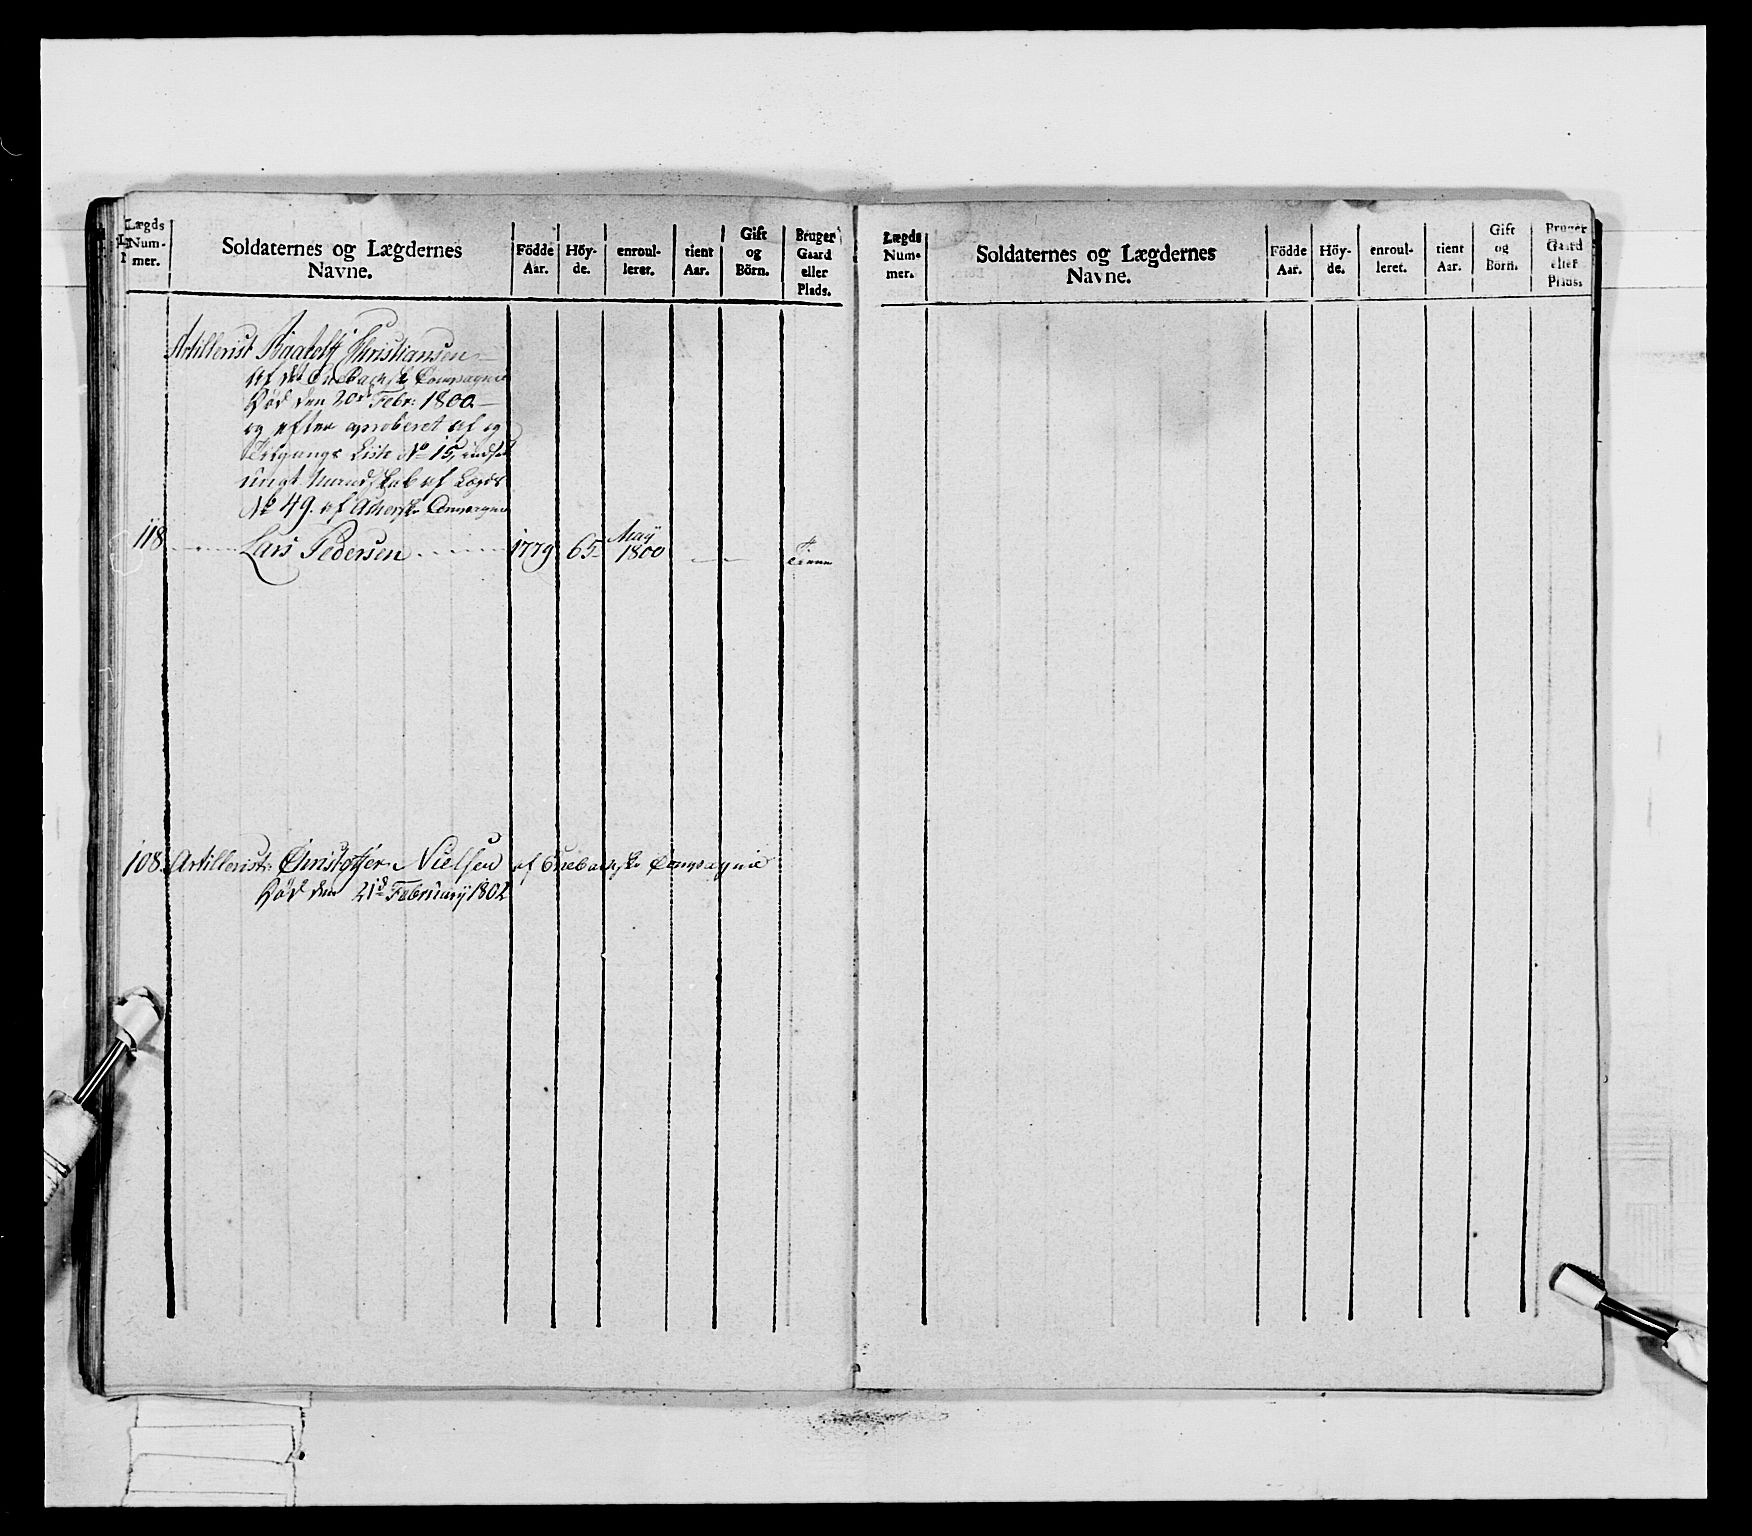 Lægds Num- mer.
Soldaternes og Lægdernes Navne.
Födde Aar.
Höy- de.
enroul- leret.
tient Aar.
Gift og Börn.
Bruger Gaard eller Plads.
Artillerist Christiansen
af det Compagnie
Död den 20d Febr: 1800
og efter aproberet af og
Tilgangs Liste No 15,
ungt Mandskab af Lægds
No 49. af Compagnie
118 Lars Pedersen 1779 65 Maÿ 1800
108 Artillerist Christoffer Nielsen af Compagnie
Död den 21d Februarÿ 1802
Lægds Num- mer.
Soldaternes og Lægdernes Navne.
Födde Aar.
Höy- de.
enroul- leret.
tient Aar.
Gift og Börn.
Bruger Gaard eller Plads.